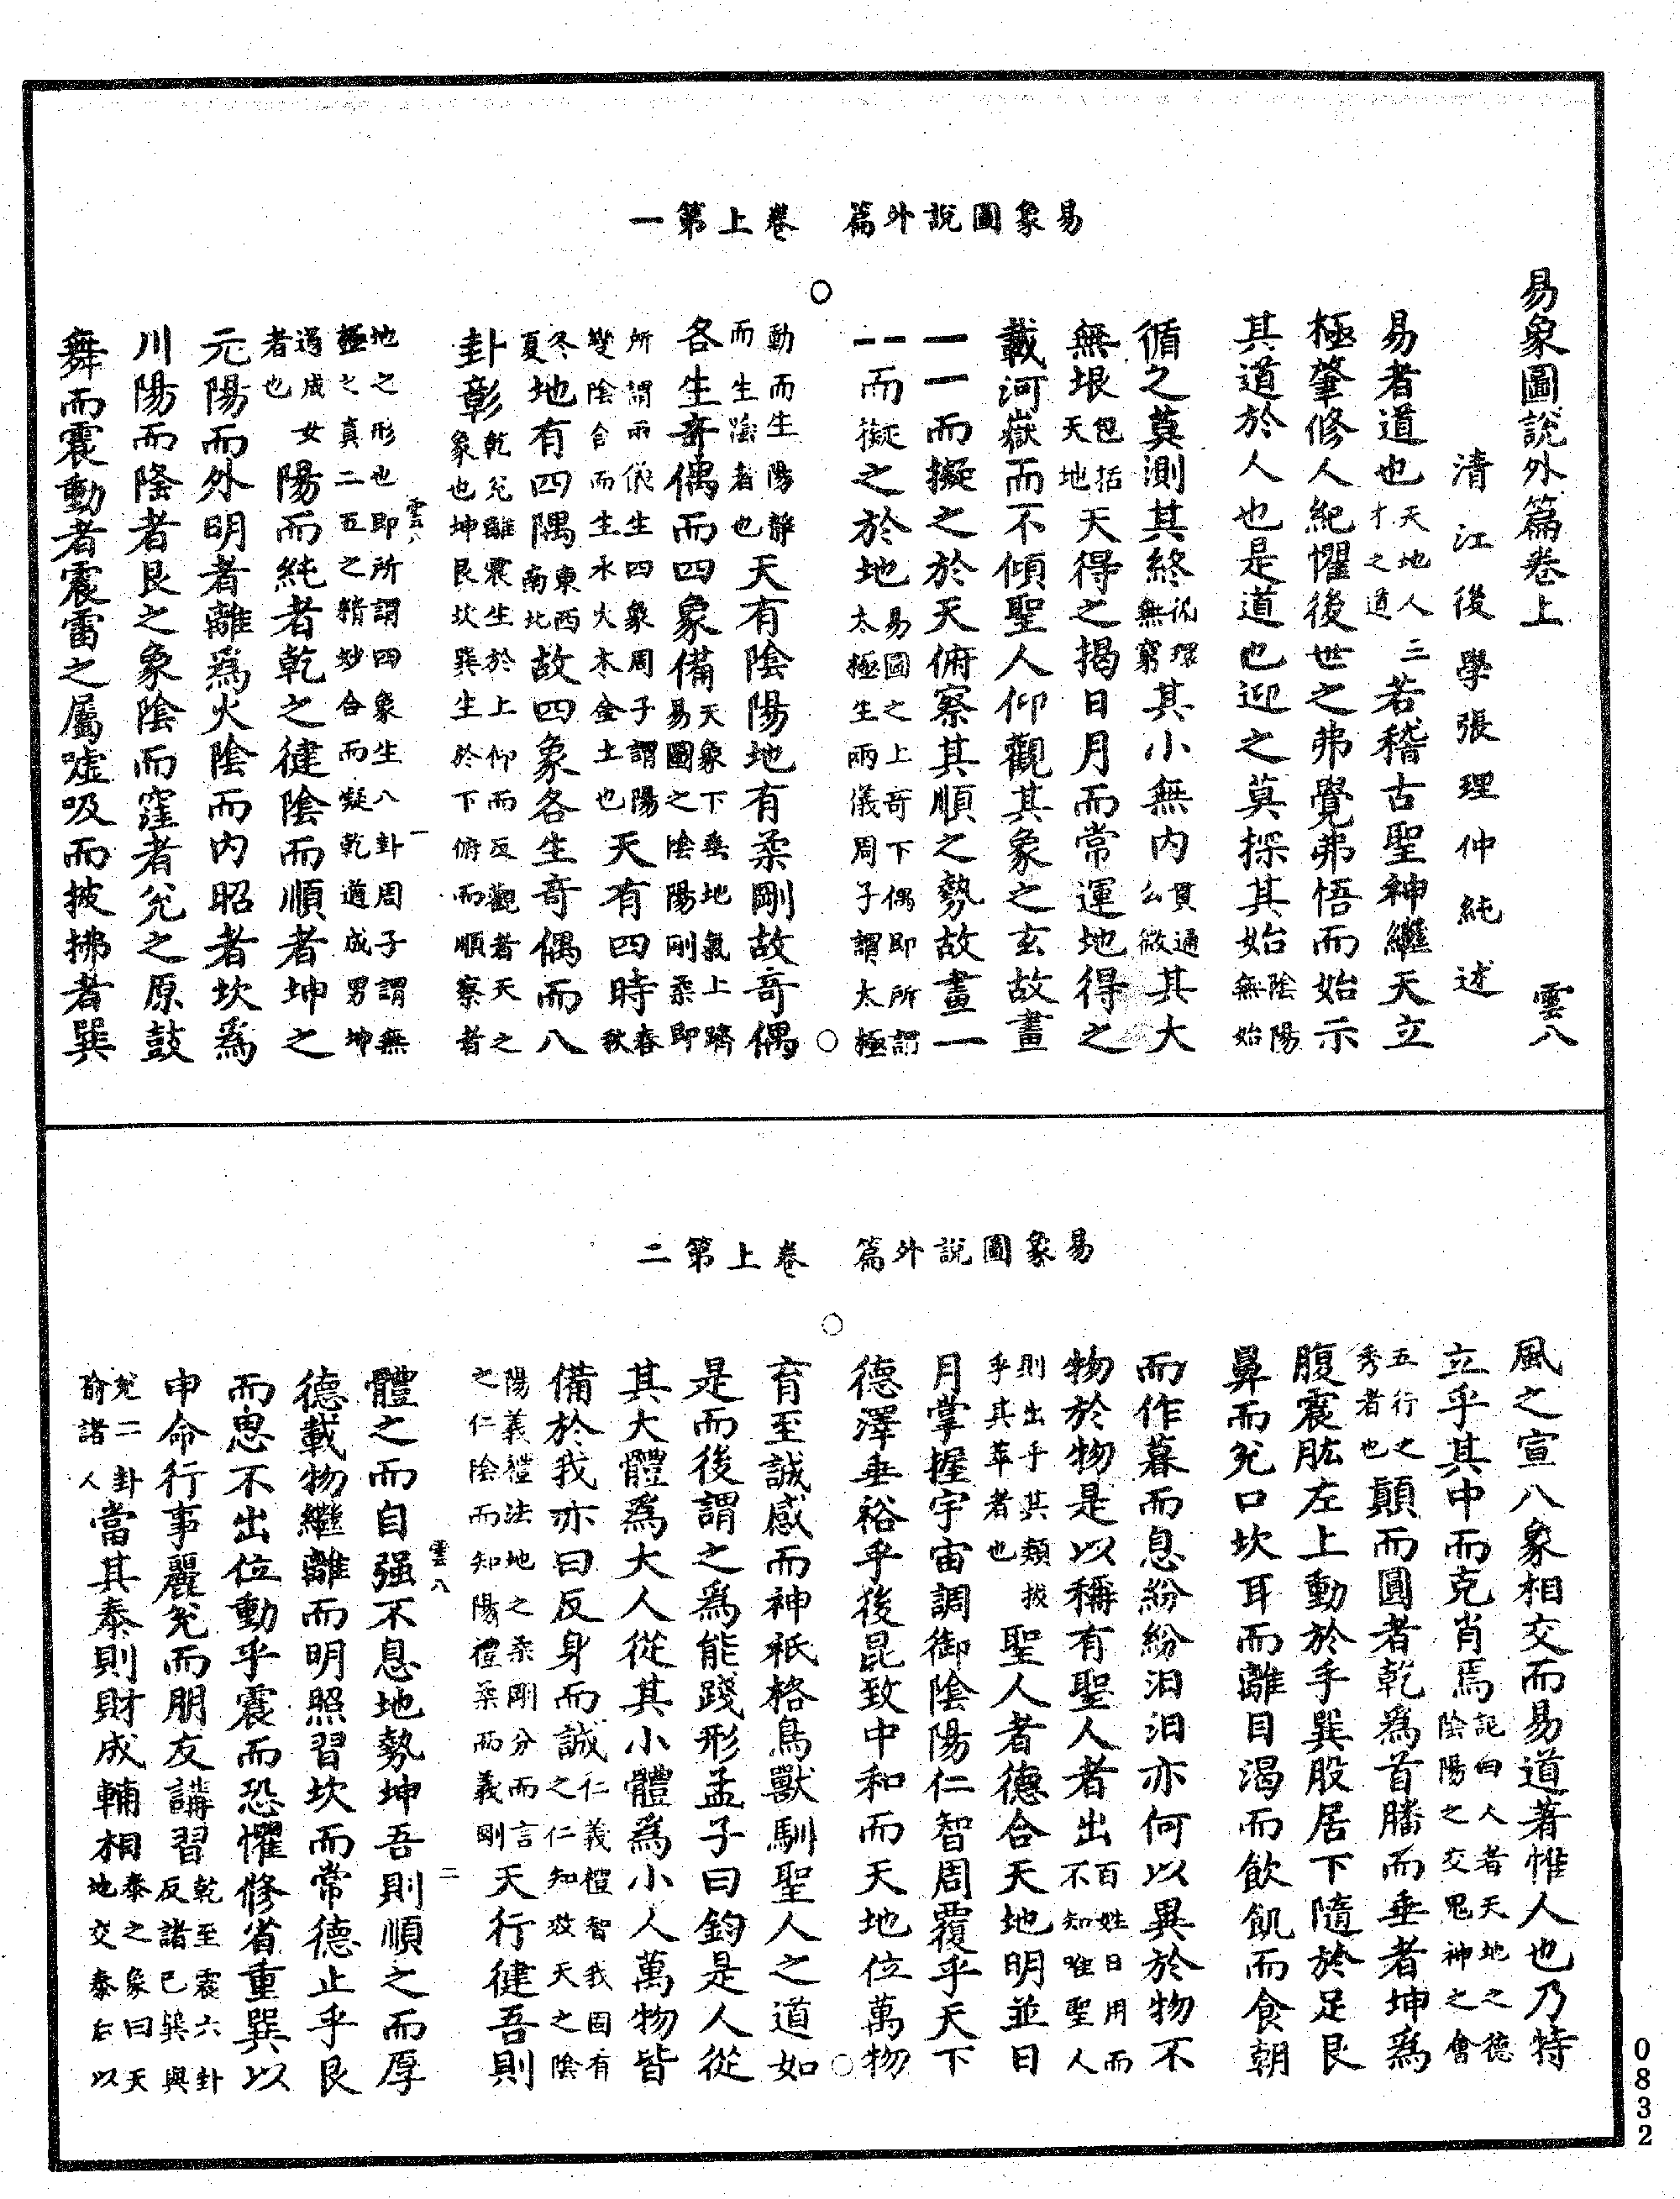 易象圖說外篇　卷上第一
易象圖說外篇卷上　雲八
清江後學張理仲純述
易者道也天地人三才之道若稽古聖神繼天立
極肇修人紀懼後世之弗覺弗悟而始示
其道於人也是道也迎之莫探其始陰陽無始
循之莫測其終循環無窮其小無内貫通幺微其大
無垠包括天地天得之揭日月而常運地得之
載河嶽而不傾聖人仰觀其象之玄故畫
一一而擬之於天俯察其順之勢故畫一
一一而擬之於地易圖之上奇下偶即所謂太極生兩儀周子謂太極
動而生陽靜而生陰者也天有陰陽地有柔剛故奇偶
各生奇偶而四象備天象下垂地氣上躋易圖之陰陽剛柔即
所謂兩儀生四象周子謂陽變陰合而生水火木金土也天有四時春秋
冬夏地有四隅東西南北故四象各生奇偶而八
卦彰乾兌離震生於上仰而反觀者天之象也坤艮坎巽生於下俯而順察者
雲八　一
地之形也即所謂四象生八卦周子謂無極之真二五之精妙合而凝乾道成男坤
道成女者也陽而純者乾之健陰而順者坤之
元陽而外明者離爲火陰而内昭者坎爲
川陽而隆者艮之象陰而窪者兌之原鼓
舞而震動者震雷之屬噓吸而披拂者巽
易象圖說外篇　卷上第二
風之宣八象相交而易道著惟人也乃特
立乎其中而克肖焉記曰人者天地之德陰陽之交鬼神之會
五行之秀者也顛而圓者乾爲首膰而垂者坤爲
腹震肱左上動於手巽股居下隨於足艮
鼻而兌口坎耳而離目渴而飲飢而食朝
而作暮而息紛紛汨汨亦何以異於物不
物於物是以稱有聖人者出百姓日用而不知唯聖人
則出乎其類拔乎其萃者也聖人者德合天地明並日
月掌握宇宙調御陰陽仁智周覆乎天下
德澤垂裕乎後昆致中和而天地位萬物
育至誠感而神祇格鳥獸馴聖人之道如
是而後謂之爲能踐形孟子曰鈞是人從
其大體爲大人從其小體爲小人萬物皆
備於我亦曰反身而誠仁義禮智我固有之仁知效天之陰
陽義禮法地之柔剛分而言之仁陰而知陽禮柔而義剛天行健吾則
雲八　二
體之而自强不息地勢坤吾則順之而厚
德載物繼離而明照習坎而常德止乎艮
而思不出位動乎震而恐懼修省重巽以
申命行事麗兌而朋友講習乾至震六卦反諸己巽與
兌二卦喻諸人當其泰則財成輔相泰之象曰天地交泰后以
0832